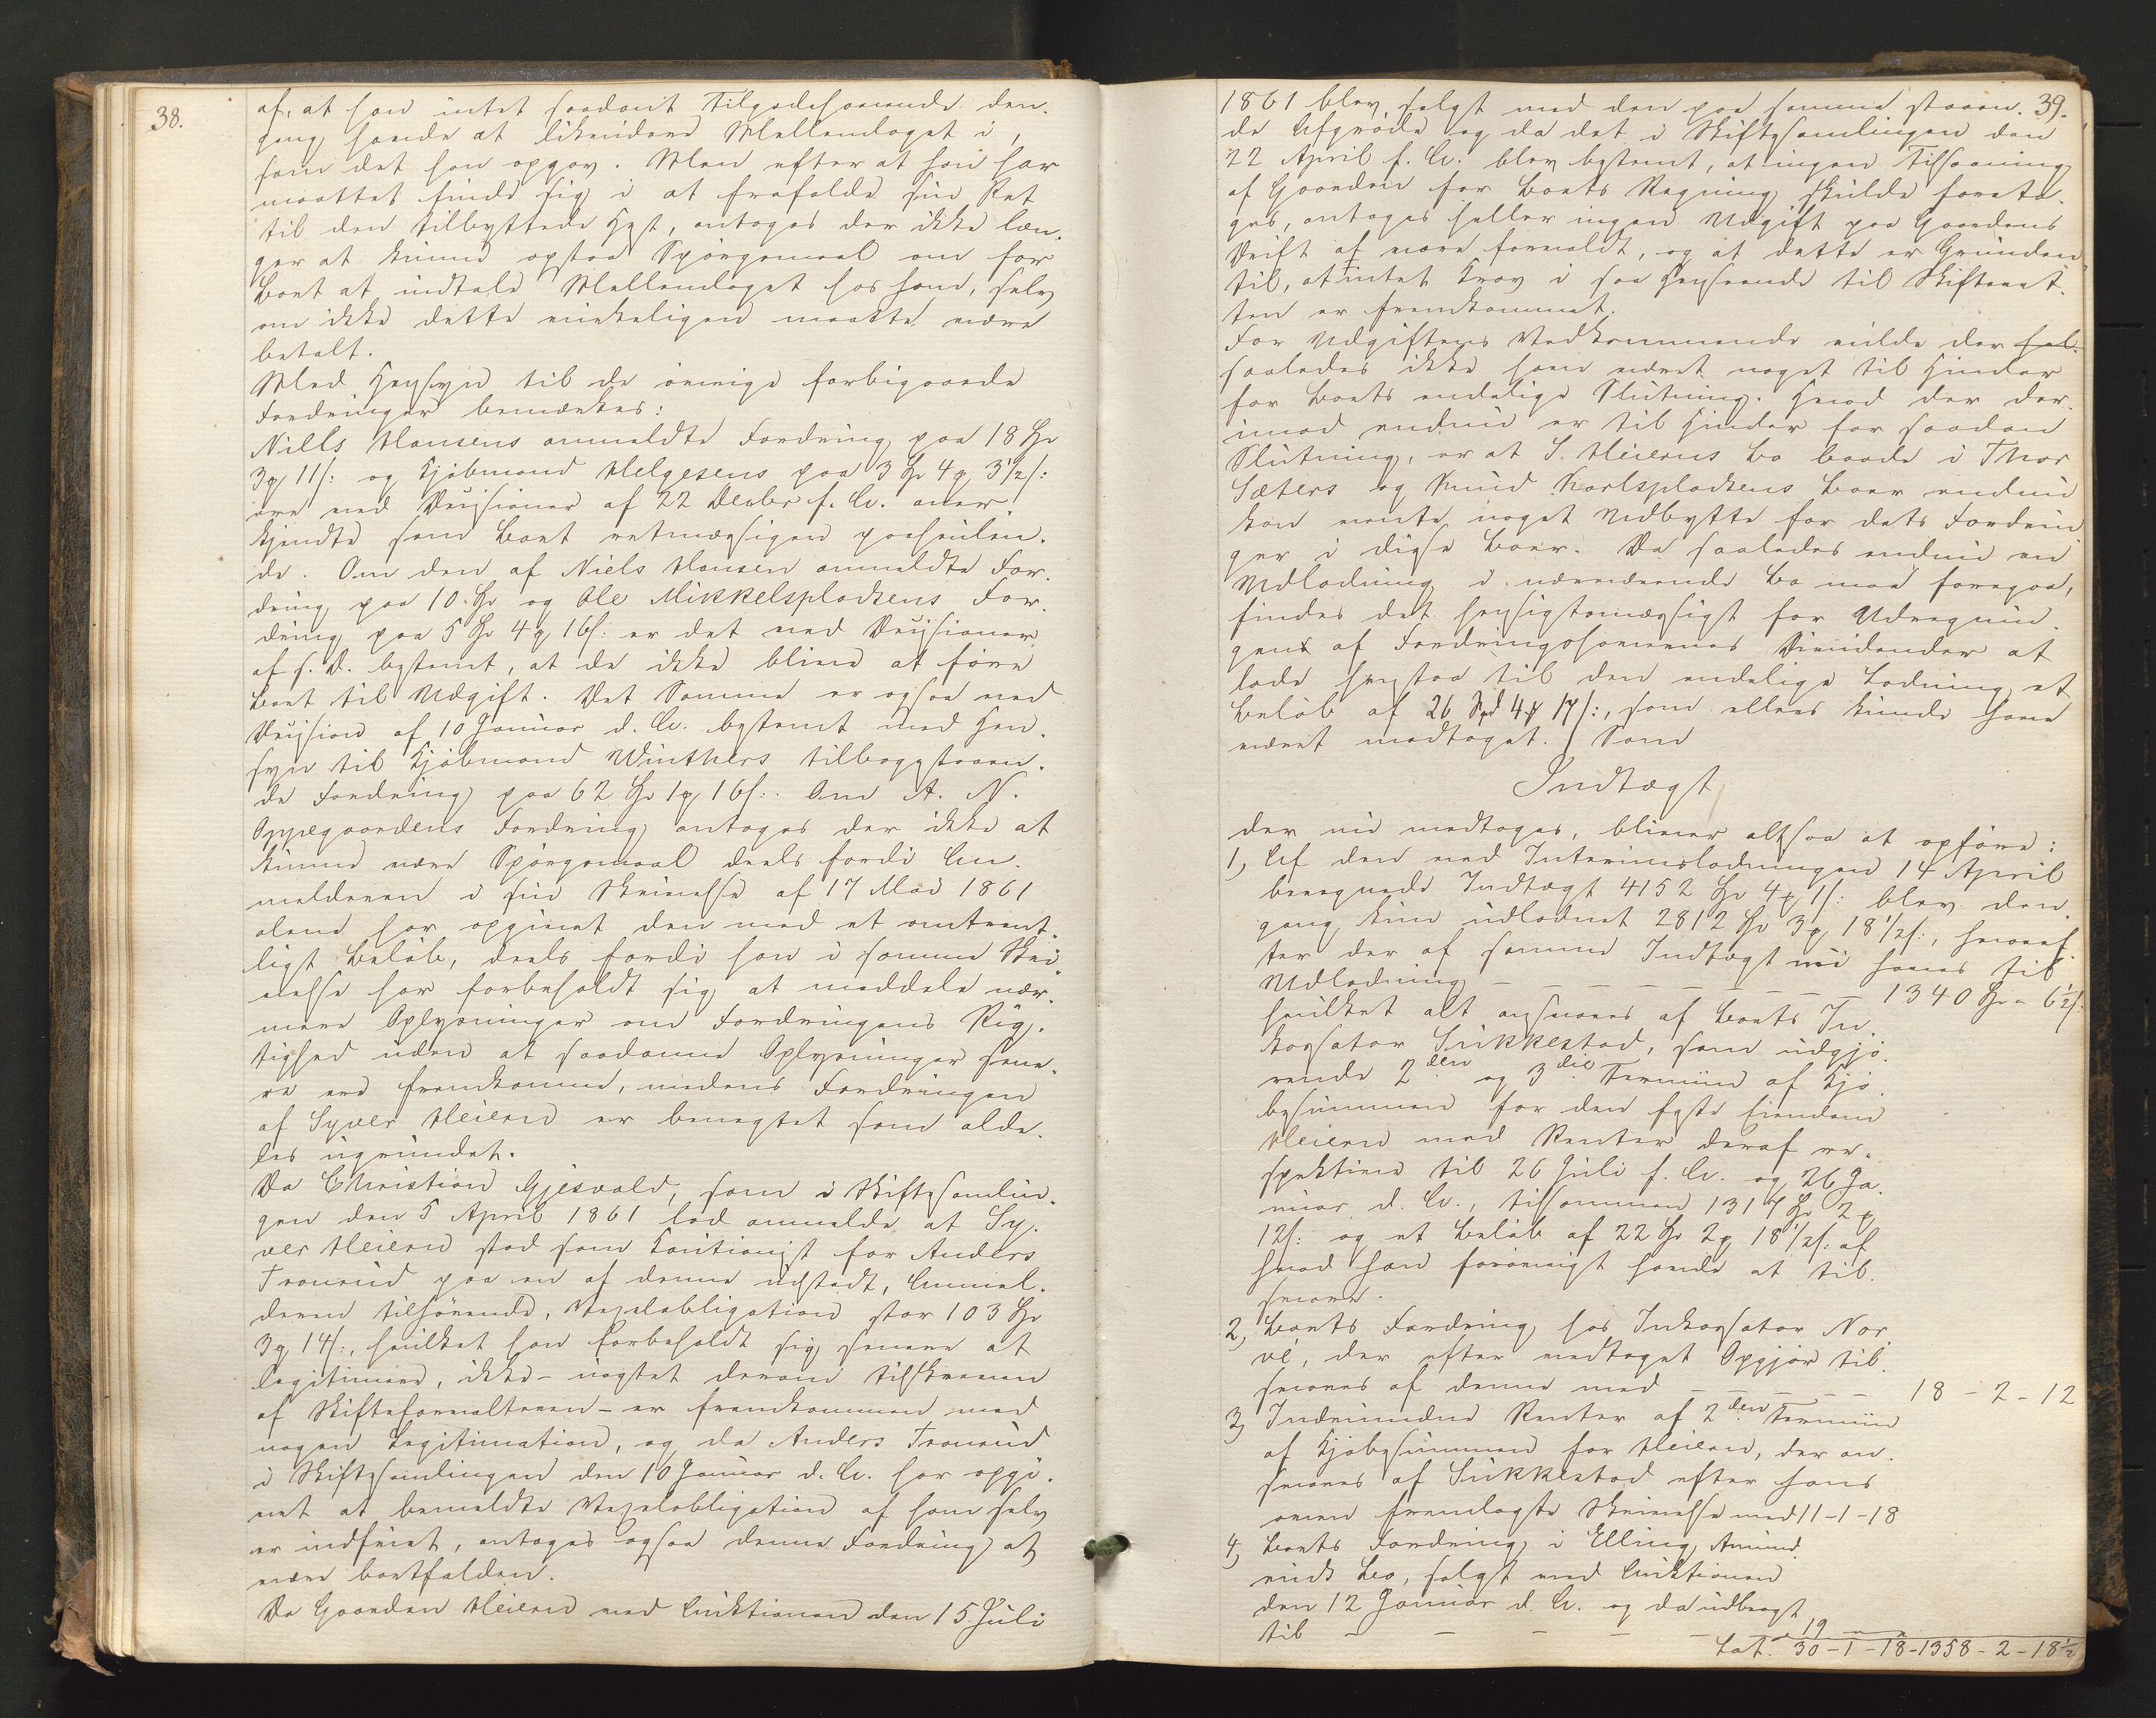 38.
af, at han intet saadant Tilgodehavende den-
gang havde at likvidere Mellemlaget i,
som det han opgav. Men efter at han har
maattet finde sig i at frafalde sin Ret
til den tilbyttede Hest, antages der ikke læn-
ger at kunne opstaa Spörgsmaal om for
Boet at indtale Mellemlaget hos ham, selv
om ikke dette virkeligen maatte være
betalt.
Med Hensyn til de övrige forbigaaede
Fordringer bemærkes:
Niels Hansens anmeldte Fordring paa 18 Spd
3 ort 11 s: og Kjöbmand Helgesens paa 3 Spd 4 ort 3 1/2 s:
ere ved Decisioner af 22 Decbr f. A. aner-
kjendte som Boet retmæssigen paahvilen-
de. Om den af Niels Hansen anmeldte For-
dring paa 10 Spd og Ole Mikkelspladsens For-
dring paa 5 Spd 4 ort 16 s: er det ved Decisioner
af s. D. bestemt, at de ikke blive at före
Boet til Udgift. Det Samme er ogsaa ved
Decision af 10 Januar d. A. bestemt med Hen-
syn til Kjöbmand Winthers tilbagestaaen-
de Fordring paa 62 Spd 1 ort 16 s:. Om A. N.
Oppegaardens Fordring antages der ikke at
kunne være Spörgsmaal deels fordi An-
melderen i sin Skrivelse af 17 Mai 1861
alene har opgivet den med et omtrent-
ligt Belöb, deels fordi han i samme Skri-
velse har forbeholdt sig at meddele nær-
mere Oplysninger om Fordringens Rig-
tighed uden at saadanne Oplysninger sene-
re ere fremkomne, medens Fordringen
af Syver Heieren er benegtet som alde-
les ugrundet.
Da Christian Gjesvald, som i Skiftesamlin-
gen den 5 April 1861 lod anmelde at Sy-
ver Heieren stod som Kautionist for Anders
Tronrud paa en af denne udstedt, Anmel-
deren tilhörende, Vexelobligation stor 103 Spd
3 ort 14 s:, hvilket han forbeholdt sig senere at
legitimere, ikke - uagtet derom tilskreven
af Skifteforvalteren - er fremkommen med
nogen Legitimation, og da Anders Tronrud
i Skiftesamlingen den 10 Januar d. A. har opgi-
vet at bemeldte Vexelobligation af ham selv
er indfriet, antages ogsaa denne Fordring at
være bortfalden.
Da Gaarden Heieren ved Auktionen den 15 Juli
39.
1861 blev solgt med den paa samme staaen-
de Afgröde og da det i Skiftesamlingen den
22 April f. A. blev bestemt, at ingen Tilsaaning
af Gaarden for Boets Regning skulde foreta-
ges, antages heller ingen Udgift paa Gaardens
Drift at være forvoldt, og at dette er Grunden
til, at intet Krav i saa Henseende til Skifteret-
ten er fremkommet.
For Udgifternes Vedkommende vilde der
saaledes ikke have været noget til Hinder
for Boets endelige Slutning. Hvad der der-
imod endnu er til Hinder for saadan
Slutning, er at S. Heierens Bo baade i Thor
Sæters og Knud Karlspladsens Boer endnu
kan vente noget Udbytte for dets Fordrin-
ger i disse Boer. Da saaledes endnu en
Udlodning i nærværende Bo maa foregaa,
findes det hensigtsmæssigt for Udregnin-
gens af Fordringshavernes Dividender at
lade henstaa til den endelige Lodning et
Belöb af 26 Spd 4 ort 17 s:, som ellers kunde have
været medtaget. Som
Indtægt,
der nu medtages, bliver altsaa at opföre:
1, Af den ved Interimslodningen 14 April
beregnede Indtægt 4152 Spd 4 ort 1 s: blev den-
gang kun udlodnet 2812 Spd 3 ort 18 1/2 s:, hvoref-
ter der af samme Indtægt nu haves til
Udlodning - - - - - - - - - 1340 Spd " 6 1/2 s:
hvilket alt ansvares af Boets In-
kassator Sukkestad, som udgjö-
rende 2den og 3die Termiin af Kjö-
besummen for den faste Eiendom
Heieren med Renter deraf re-
spektive til 26 Juli f. A. og 26 Ja-
nuar d. A., tilsammen 1317 Spd 2 ort
12 s: og et Belöb af 22 Spd 2 ort 18 1/2 s: af
hvad han forövrigt havde at til-
svare.
2, Boets Fordring hos Inkassator Nor-
vi, der efter vedtaget Opgjör til-
svares af denne med - - - - - 18 - 2 - 12
3, Indvundne Renter af 2den Termiin
af Kjöbesummen for Heieren, der an-
svares af Sukkestad efter hans
oven fremlagte Skrivelse med 11 - 1 - 18
4, Boets Fordring i Elling Amund-
ruds Bo, solgt ved Auktionen
den 12 Januar d. A. og da udbragt
til - - - - - 19 " "
Lat. 30 - 1 - 18 - 1358 - 2 - 18 1/2